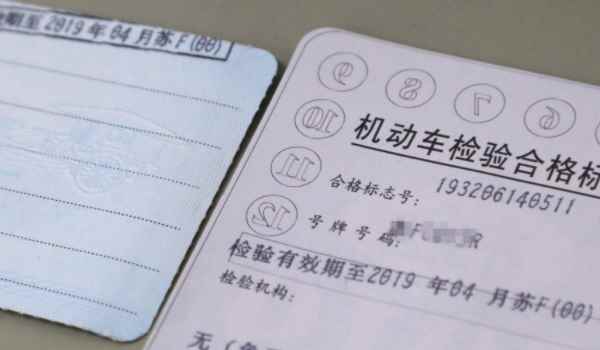 期至2019 年04 月苏F(00)
9
8
7
6
10
11
12
机动车检验合格标
合格标志号: 193206140511
号 牌 号 码:
检验有效期至2019 年04 月苏F(00)
检验机构:
无(